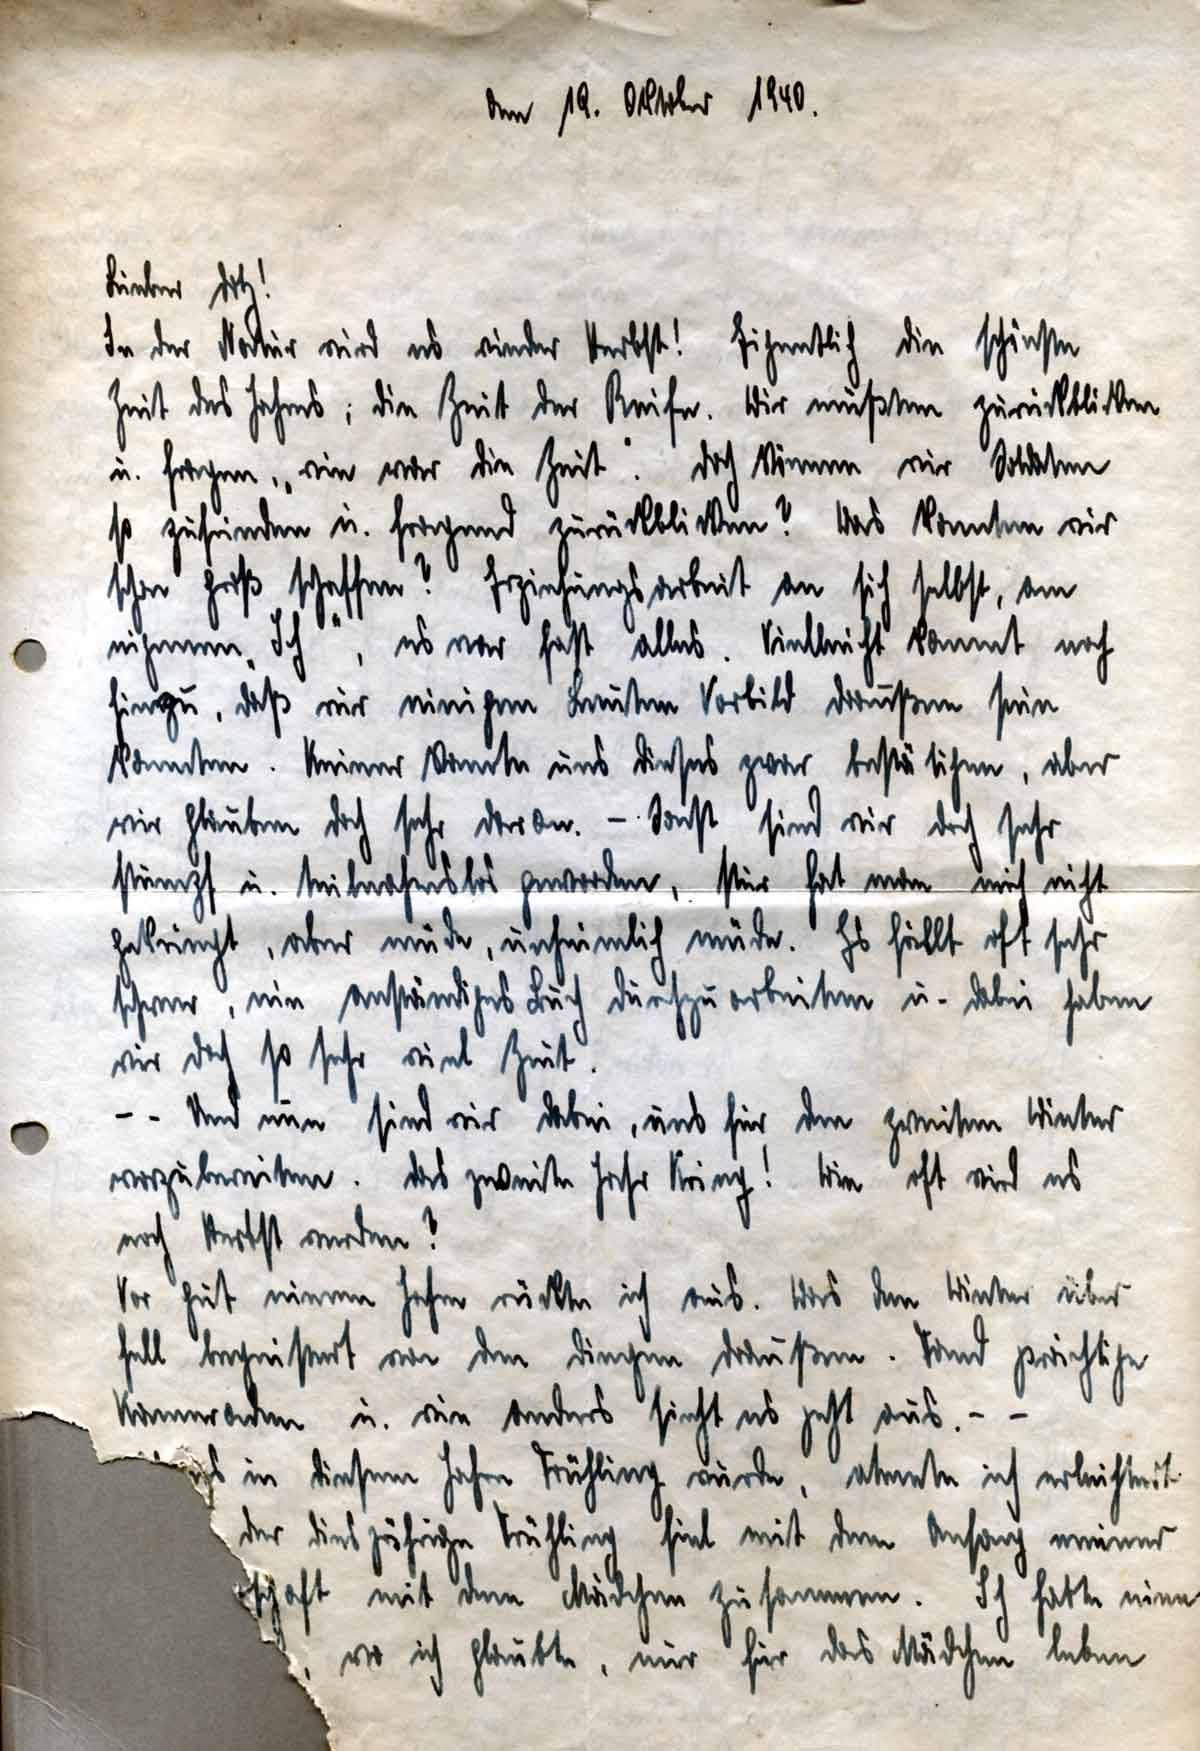 den 19. Oktober 1940.
Lieber Dotz!
In der Natur wird es wieder Herbst! Eigentlich die schönste
Zeit des Jahres; die Zeit der Reife. Wir müßten zurückblicken
u. fragen, „wie war die Zeit". Doch können wir Soldaten
so zufrieden u. fragend zurückblicken? Was konnten wir
schon groß schaffen? Erziehungsarbeit an sich selbst, am
eigenen „Ich", es war fast alles. Vielleicht kommt noch
hinzu, daß wir einigen Leuten Vorbild draußen sein
konnten. Keiner konnte uns dieses zwar bestätigen, aber
wir glauben doch sehr daran. – Sonst sind wir doch sehr
stumpf u. teilnahmslos geworden, stur hat man mich nicht
gekriegt, aber müde, unheimlich müde. Es fällt oft sehr
schwer, ein anständiges Buch durchzuarbeiten u. dabei haben
wir doch so sehr viel Zeit.
-- Und nun sind wir dabei, uns für den zweiten Winter
vorzubereiten. Das zweite Jahr Krieg! Wie oft wird es
noch Herbst werden?
Vor gut einem Jahre rückte ich aus. Was den Winter über
hell begeistert von den Dingen draußen. Fand prächtige
Kameraden u. wie anders sieht es jetzt aus. --
es in diesem Jahre Frühling wurde, atmete ich erleichtert
der diesjährige Frühling fiel mit dem Anfang meiner
schaft mit dem Mädchen zusammen. Ich hatte eine
, wo ich glaubte, nur für das Mädchen leben